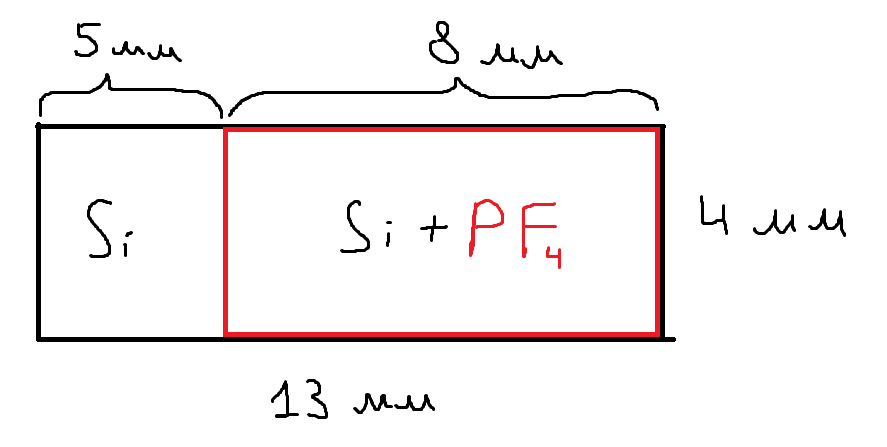 5 мм
8 мм
Si
Si + PF₄
4 мм
13 мм